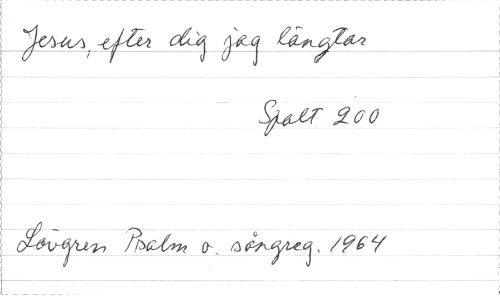 Jesus, efter dig jag längtar
Spalt 200
Lövgren Psalm o. sångreg. 1964